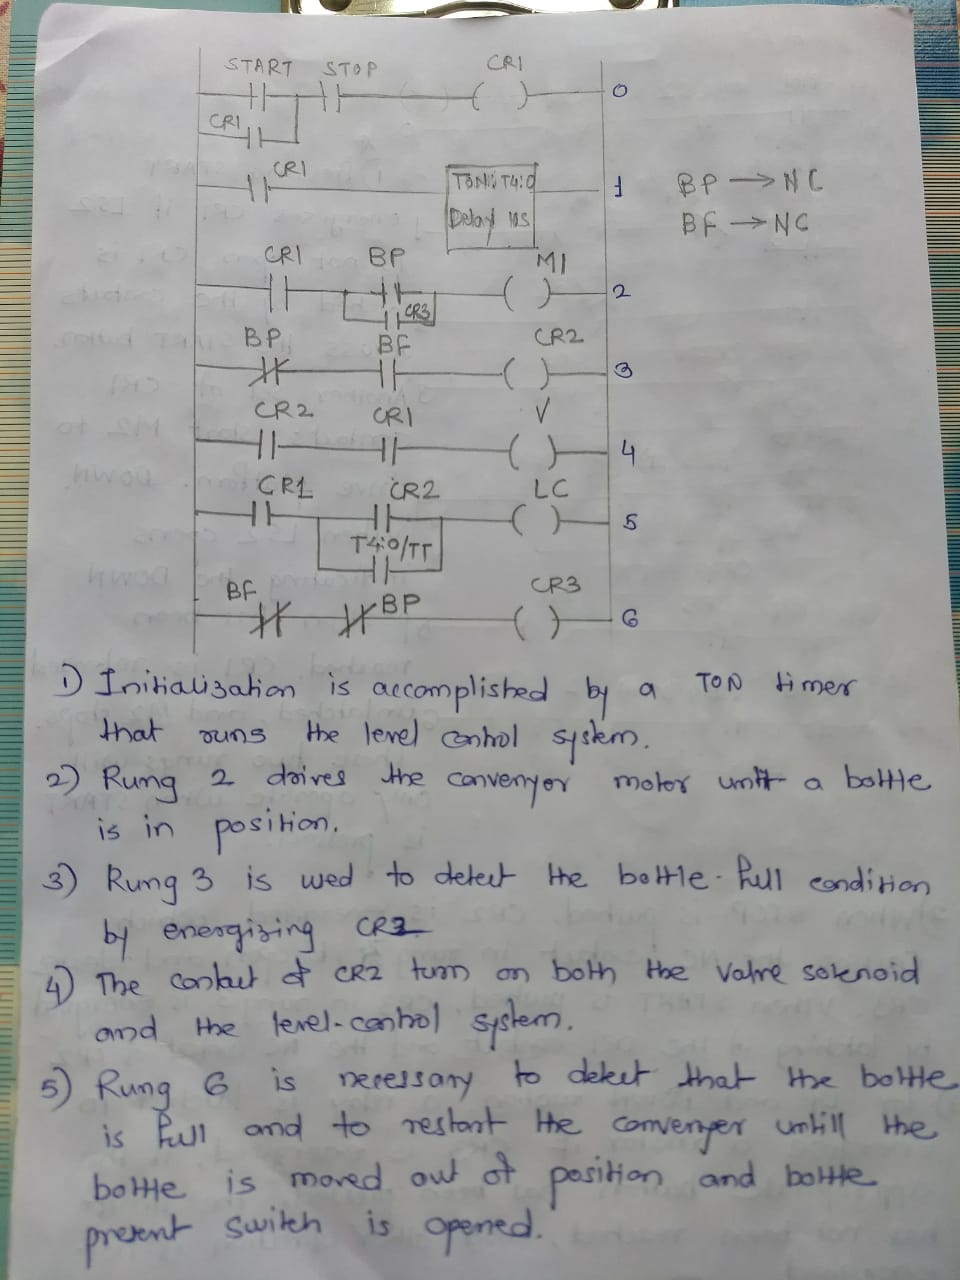 START STOP CR1
0
CR1
CR1
TON: T4:0
Delay 10s
1
BP → NC
BF → NC
CR1 BP M1
2
CR3
BP BF CR2
3
CR2 CR1 V
4
CR1 CR2 LC
5
T4:0/TT
BF BP CR3
6
1) Initialization is accomplished by a TON timer
that runs the level control system.
2) Rung 2 drives the convenyor motor untit a bottle
is in position.
3) Rung 3 is used to detect the bottle-full condition
by energizing CR2
4) The contact of CR2 turn on both the valve solenoid
and the level-control system.
5) Rung 6 is necessary to detect that the bottle
is full and to restart the convenyer untill the
bottle is moved out of position and bottle
present switch is opened.